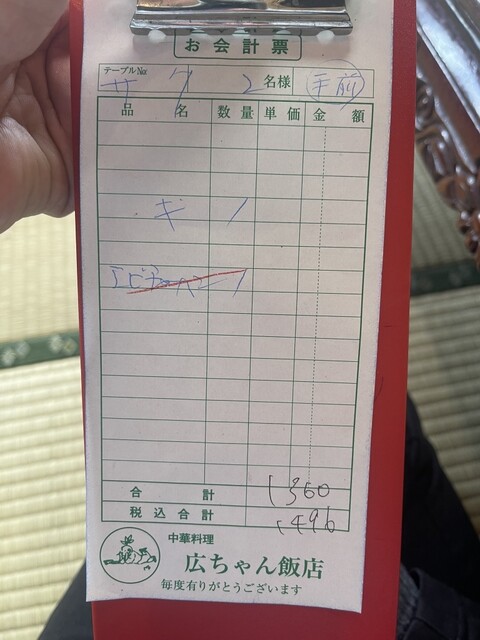 お会計票
テーブルNo. サ ク 2名様 手前
品 名 数 量 単 価 金 額
ギ 1
エビチャーハン 1
合 計 1360
税 込 合 計 1496
中華料理
広ちゃん飯店
毎度有りがとうございます